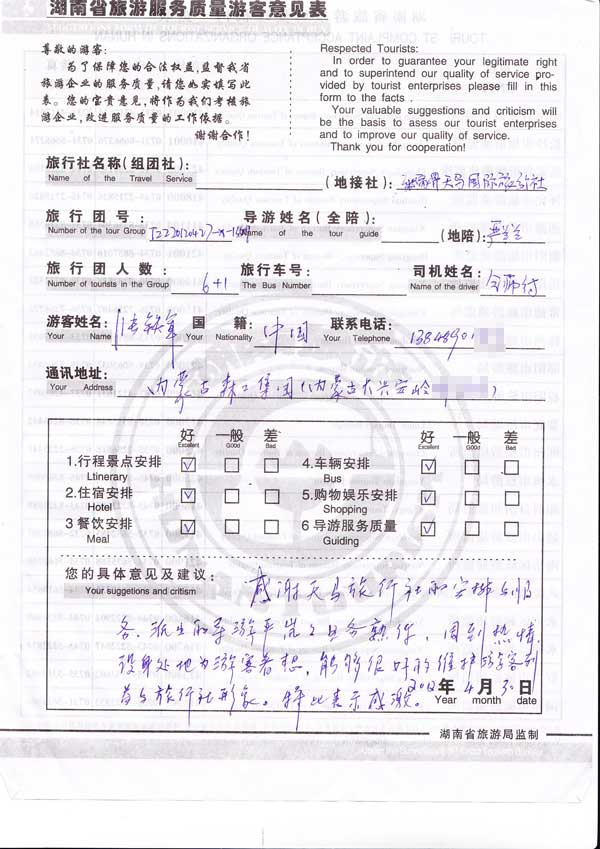 湖南省旅游服务质量游客意见表
尊敬的游客:
为了保障您的合法权益,监督我省
旅游企业的服务质量,请您如实填写此
表。您的宝贵意见,将作为我们考核旅
游企业,改进服务质量的工作依据。
谢谢合作!
Respected Tourists:
In order to guarantee your legitimate right
and to superintend our quality of service pro-
vided by tourist enterprises please fill in this
form to the facts .
Your valuable suggestions and criticism will
be the basis to asess our tourist enterprises
and to improve our quality of service.
Thank you for cooperation!
旅行社名称(组团社): (地接社): 张家界天马国际旅行社
Name of the Travel Service
旅行团号: 导游姓名(全陪): (地陪):
Number of the tour Group Name of the tour guide
旅行团人数: 6+1 旅行车号: 司机姓名:
Number of tourists in the Group The Bus Number Name of the driver
游客姓名: 张铁军 国籍: 中国 联系电话: 1384890
Your Name Your Nationality Your Telephone
通讯地址: 内蒙古森工集团(内蒙古大兴安岭 )
Your Address
好 一般 差 好 一般 差
Excellent Good Bad Excellent Good Bad
1.行程景点安排 ☑ ☐ ☐ 4.车辆安排 ☑ ☐ ☐
Ltinerary Bus
2.住宿安排 ☑ ☐ ☐ 5.购物娱乐安排 ☐ ☐ ☐
Hotel Shopping
3 餐饮安排 ☑ ☐ ☐ 6 导游服务质量 ☑ ☐ ☐
Meal Guiding
您的具体意见及建议: 感谢天马旅行社的安排与服
Your suggetions and critism
务.派出的导游严岚业务熟练,周到热情,
设身处地为游客着想,能够很好的维护游客利
益与旅行社形象。特此表示感激。 2012年4月30日
Year month date
湖南省旅游局监制